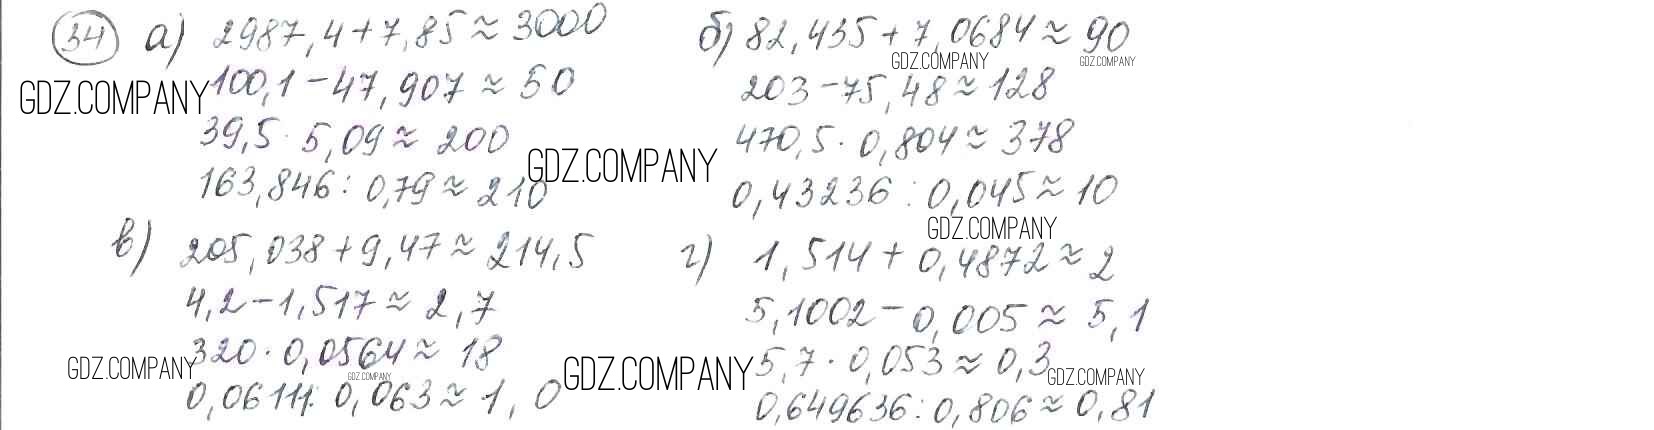 34 а) 2987,4 + 7,85 ≈ 3000
100,1 − 47,907 ≈ 50
39,5 · 5,09 ≈ 200
163,846 : 0,79 ≈ 210
б) 82,435 + 7,0684 ≈ 90
203 − 75,48 ≈ 128
470,5 · 0,804 ≈ 378
0,43236 : 0,045 ≈ 10
в) 205,038 + 9,47 ≈ 214,5
4,2 − 1,517 ≈ 2,7
320 · 0,0564 ≈ 18
0,06111 : 0,063 ≈ 1,0
г) 1,514 + 0,4872 ≈ 2
5,1002 − 0,005 ≈ 5,1
5,7 · 0,053 ≈ 0,3
0,649636 : 0,806 ≈ 0,81
GDZ.COMPANY
GDZ.COMPANY
GDZ.COMPANY
GDZ.COMPANY
GDZ.COMPANY
GDZ.COMPANY
GDZ.COMPANY
GDZ.COMPANY
GDZ.COMPANY